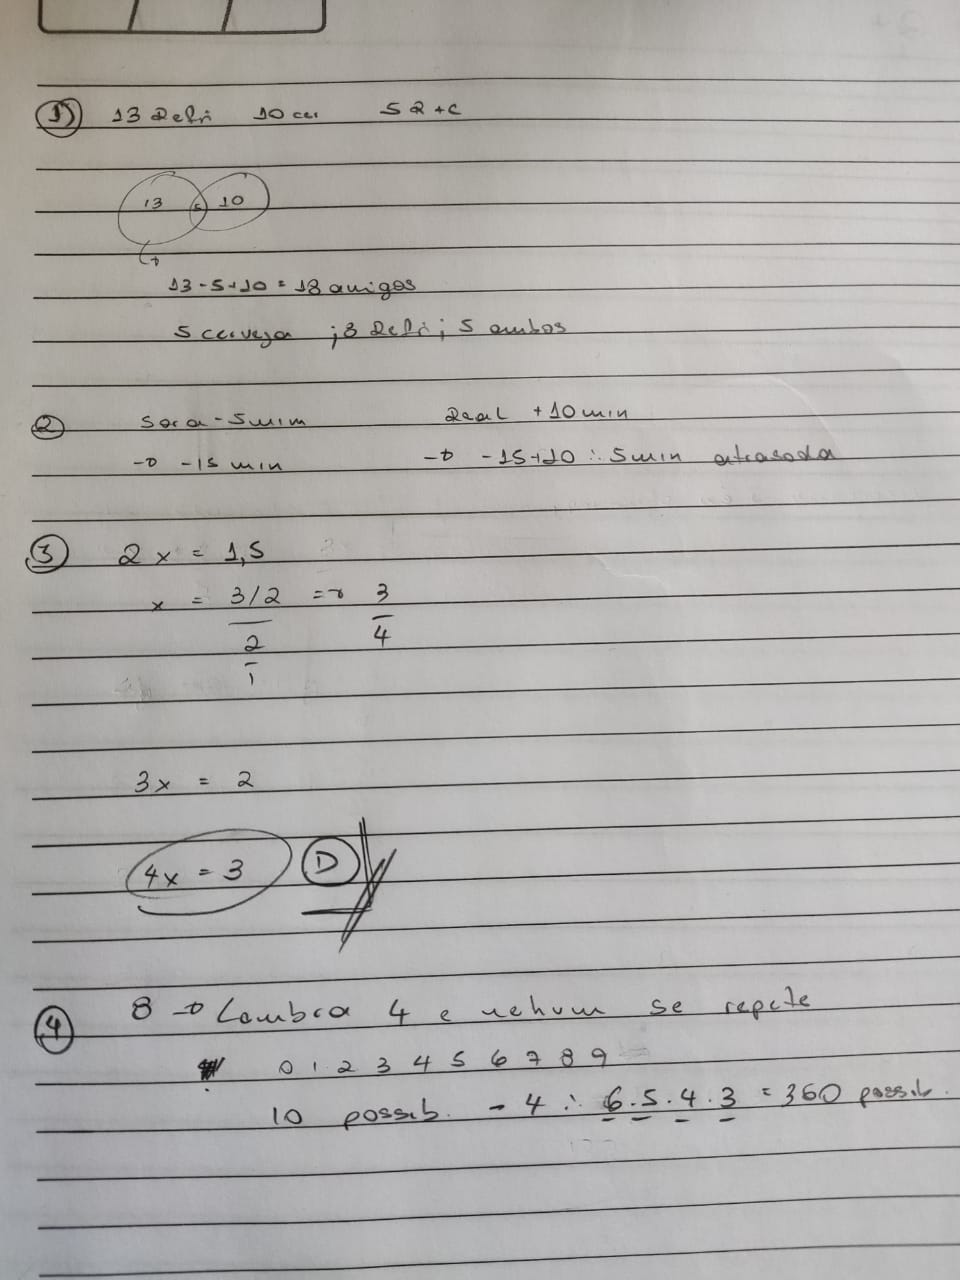 1) 13 Refri 10 cer 5 R+C
13 5 10
13-5+10 = 18 amigos
5 cerveja ; 8 Refri ; 5 ambos
2 Sara - 5 mim Real + 10 min
→ -15 min → -15+10 ∴ 5 min atrasada
3 2x = 1,5
x = 3/2 => 3
2 4
1
3x = 2
4x = 3 D
4 8 → Lembra 4 e nehum se repete
0 1 2 3 4 5 6 7 8 9
10 possib. - 4 ∴ 6.5.4.3 = 360 possib.